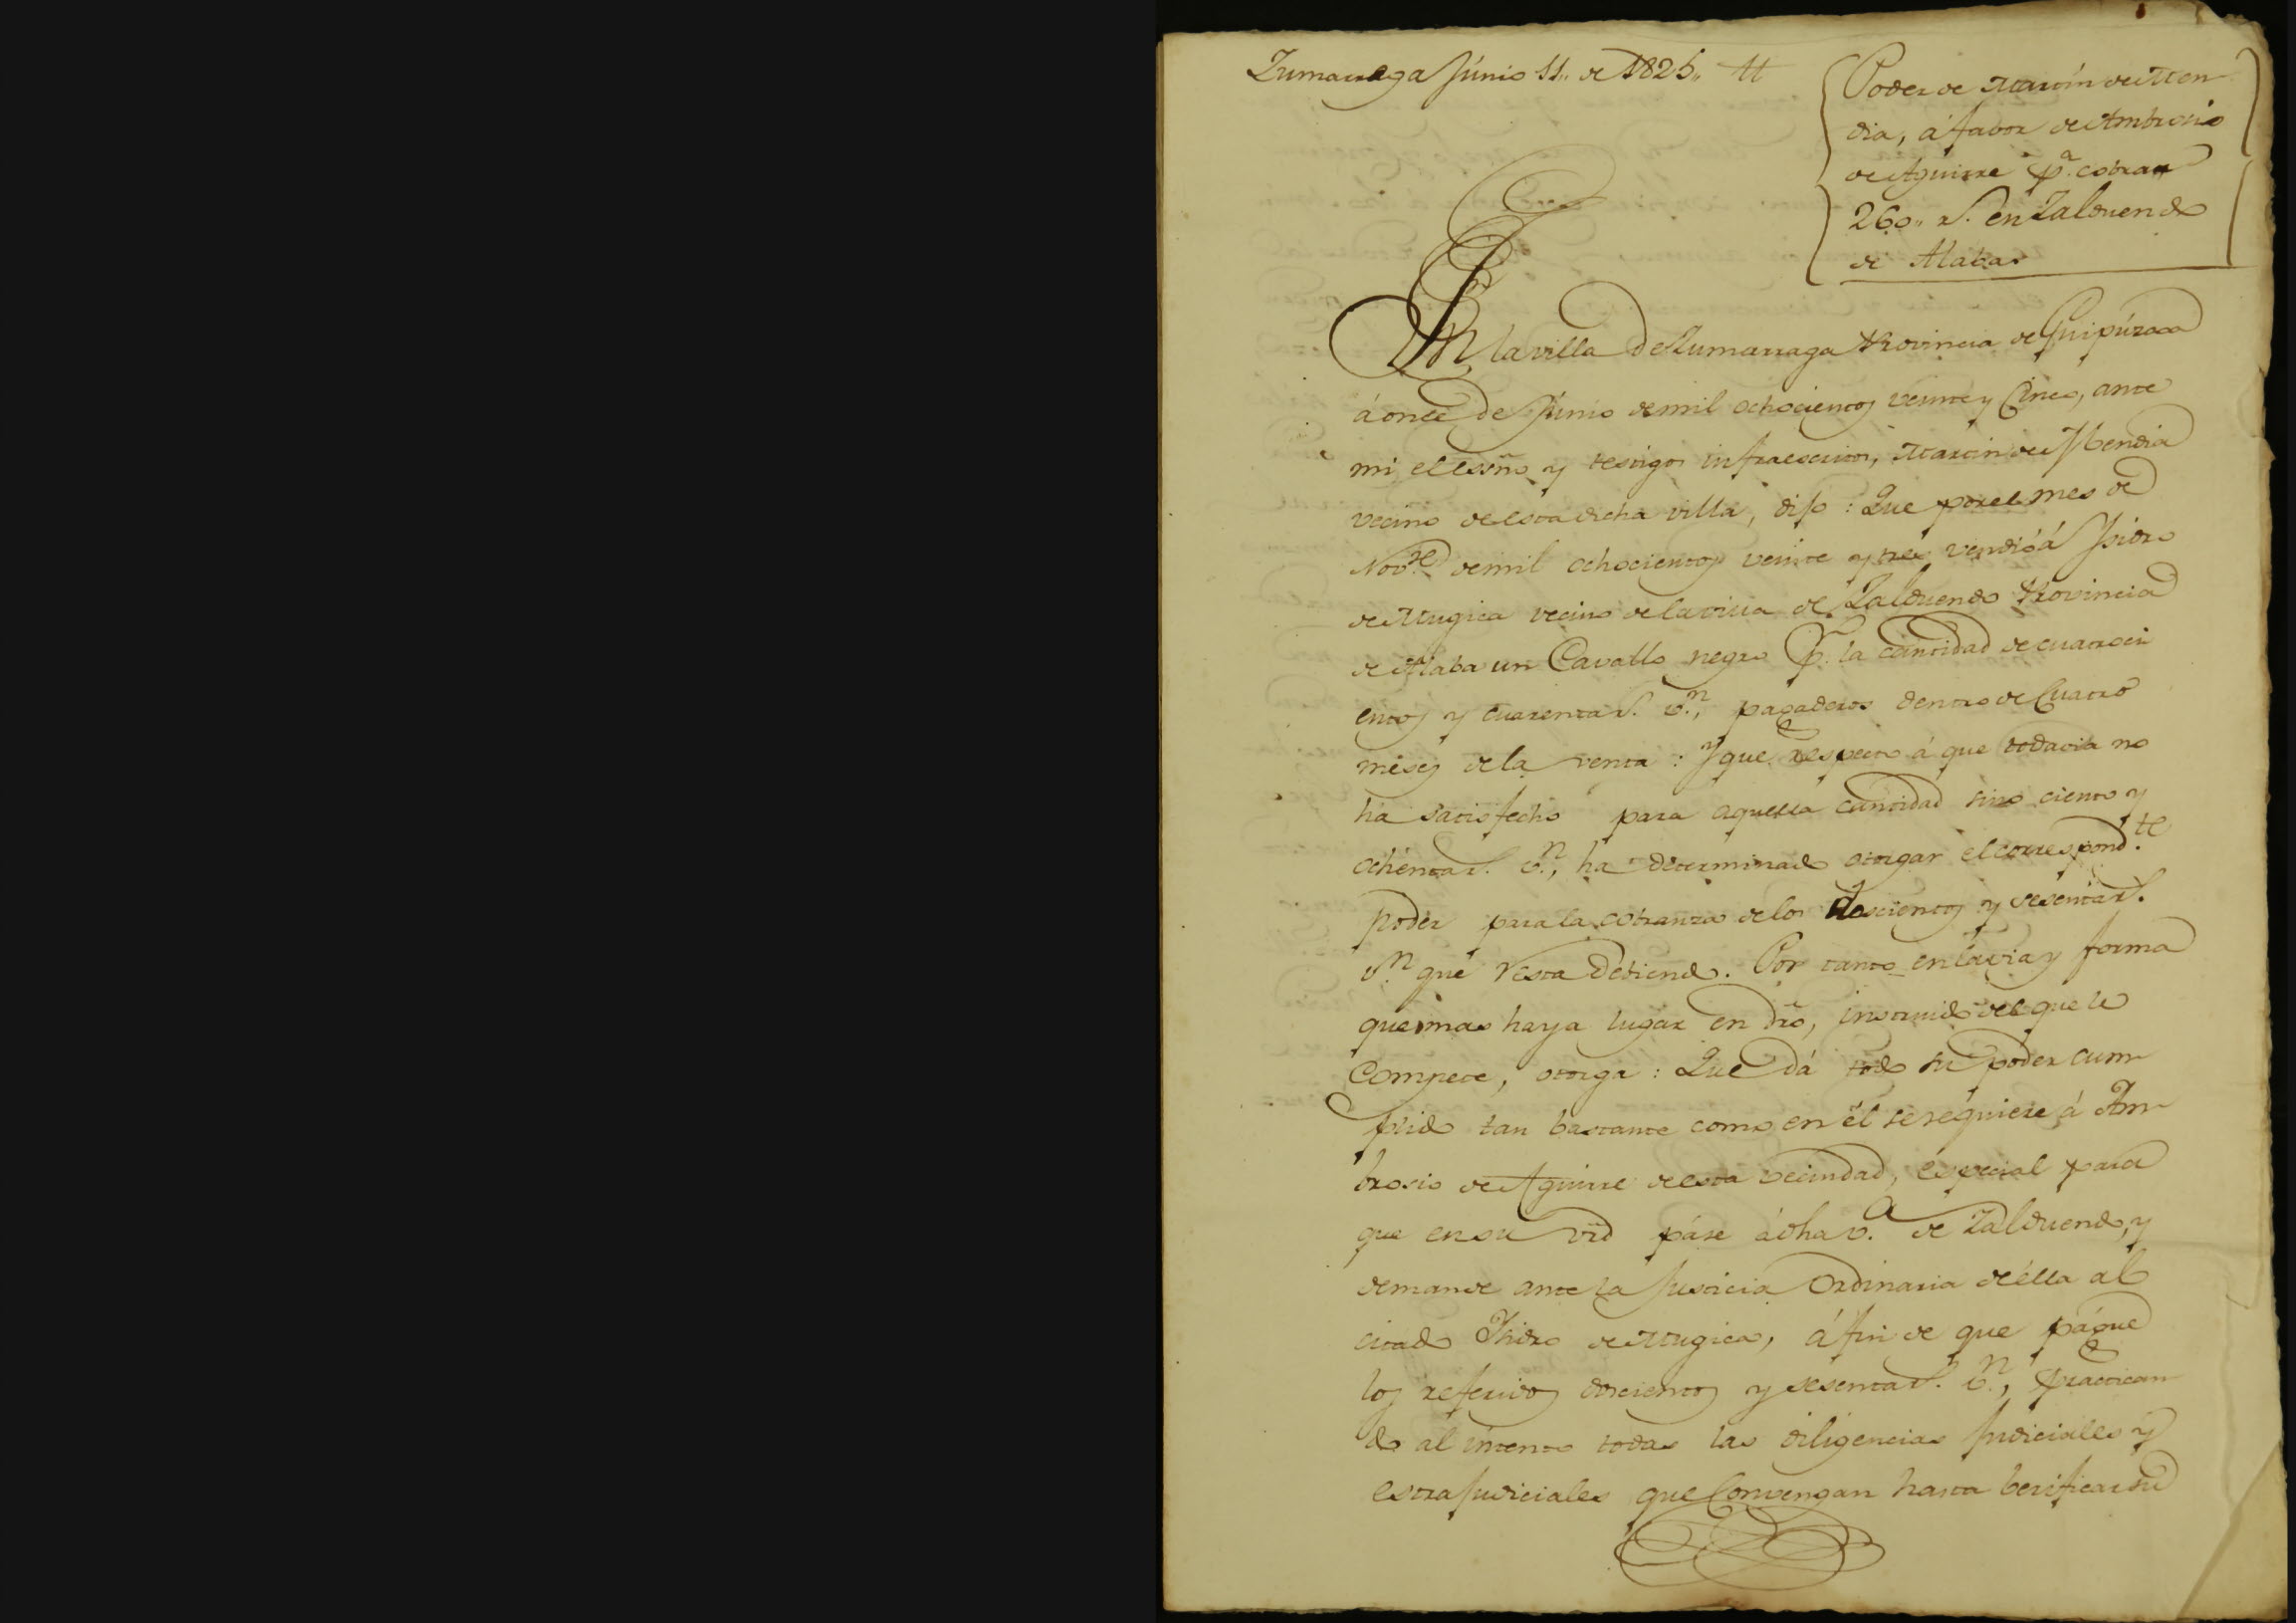 Zumarraga Júnio 11,, de 1825,, H
Poder de Martín de Men-
dia, á fabor de Ambrosio
de Aguirre p.ª cobrar
260,, r.s en Zalduendo
de Alaba.
En la villa de Zumarraga Provincia de Guipúzcoa
á once de Júnio de mil ochocientos veinte y Cinco, ante
mi el essno y testigos infraescritos, Martin de Mendia
vecino de esta dicha villa, dijo : Que por el mes de
Nov.re de mil ochocientos veinte y tres vendió á Isidro
de Mugica vecino de la villa de Zalduendo Provincia
de Alaba un Cavallo negro p.r la cantidad de cuatroci
entos y cuarenta r.s v.n, pagaderos dentro de Cuatro
meses de la venta : Y que respecto á que todavia no
há satisfecho para aquella cantidad sino ciento y
ochenta r.s v.n, ha determinado otorgar el correspond.te
poder para la cobranza de los doscientos y sesenta r.s
v.n que resta debiendo. Por tanto en la via y forma
que mas haya lugar en dro, instruido del que le
Compete, otorga : Que dá todo su poder cum-
plido tan bastante como en él se requiere á Am-
brosio de Aguirre de esta vecindad, especial para
que en su vid pase á dha v.ª de Zalduendo, y
demande ante la Justicia Ordinaria de élla al
citado Isidro de Mugica, á fin de que págue
los referidos doscientos y sesenta r.s v.n, practican
do al intento todas las diligencias Judiciales y
estrajudiciales que Convengan hasta berificar su